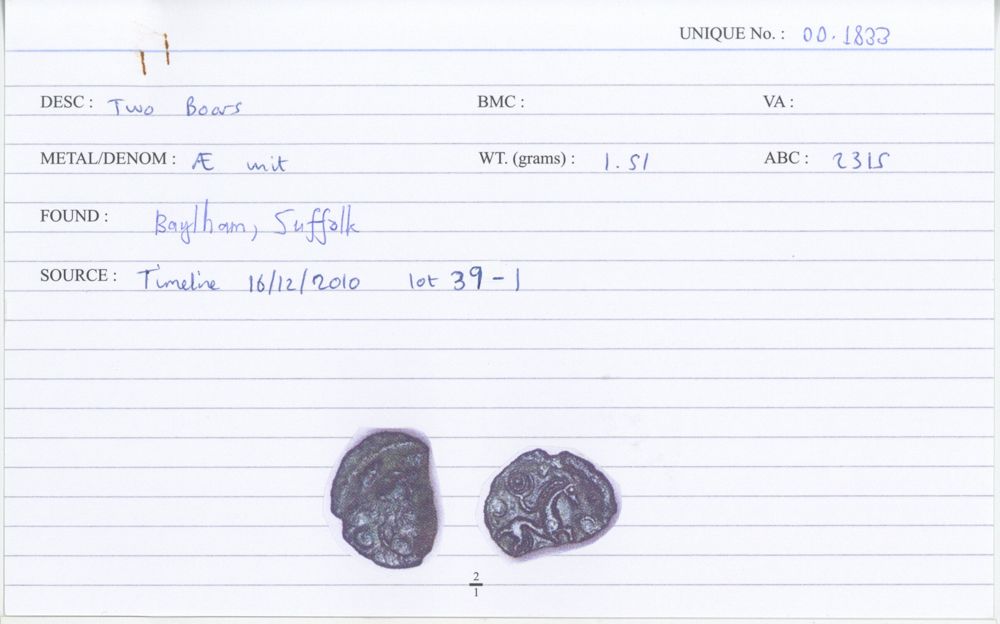 UNIQUE No. : 00.1833
DESC : Two Boars BMC : VA :
METAL/DENOM : Æ unit WT. (grams) : 1.51 ABC : 2315
FOUND : Baylham, Suffolk
SOURCE : Timeline 16/12/2010 lot 39-1
2
1